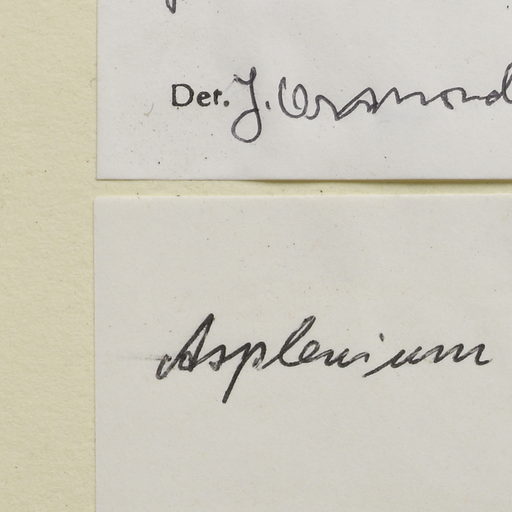 Det. J. Ormond
Asplenium